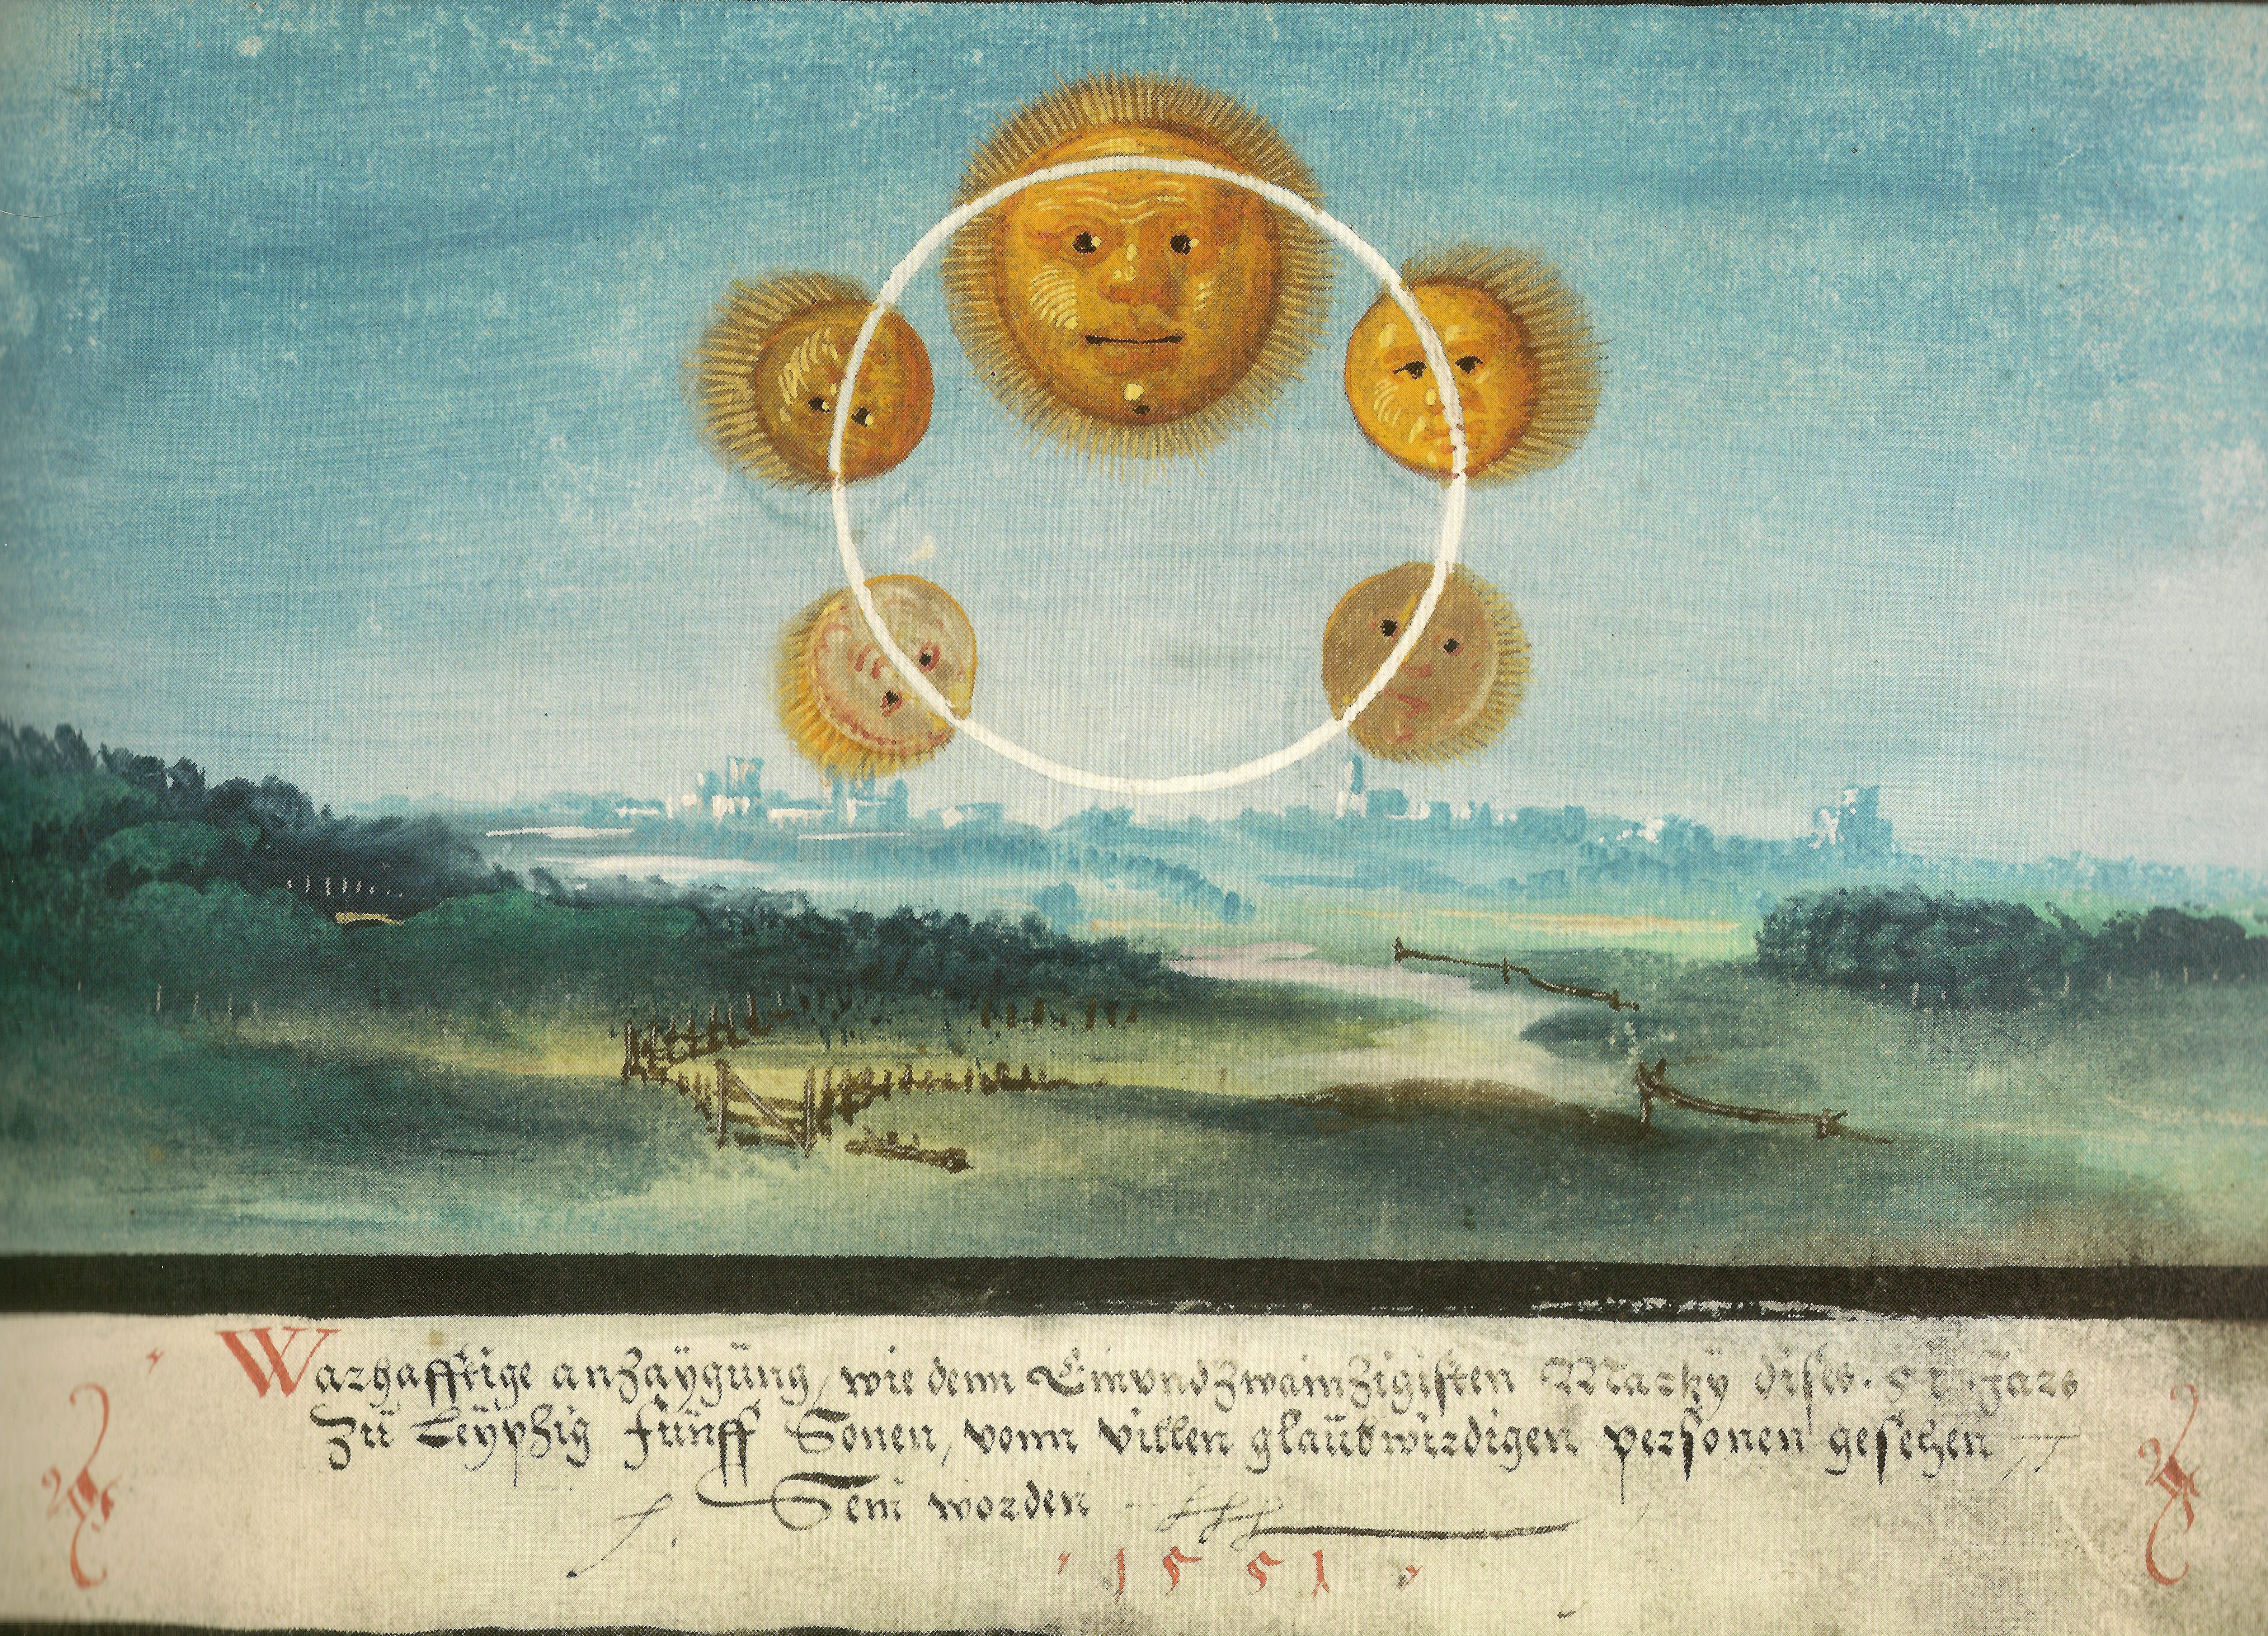 Warhafftige anzaÿgüng, wie denn Einvndzwainzigisten Martzÿ dises. 51. Jars
Zü Leÿpzig fünff Sonen, vonn villen glaübwirdigen personen gesehen
Sein worden
1551